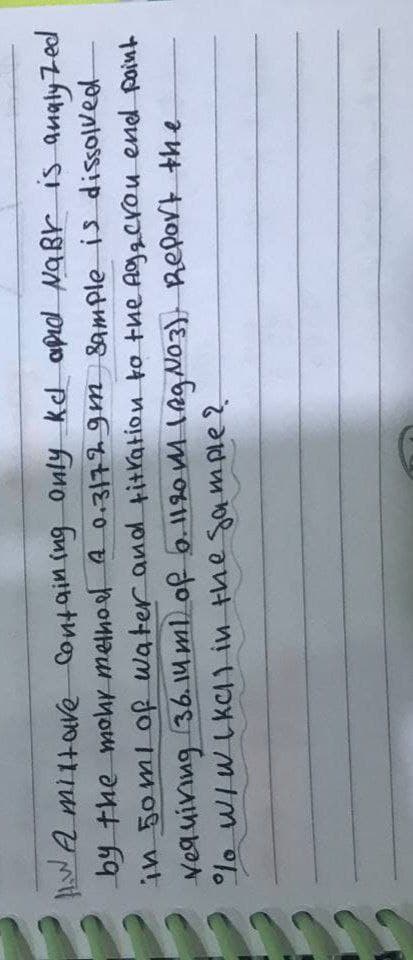 H.W A mixture containing only KCl and NaBr is analyzed
by the mohr method A 0.3172 gm sample is dissolved
in 50 ml of water and titration to the Ag2CrO4 end point
requiring 36.14 ml of 0.1120 M (AgNO3), Report the
% w/w (KCl) in the sample?